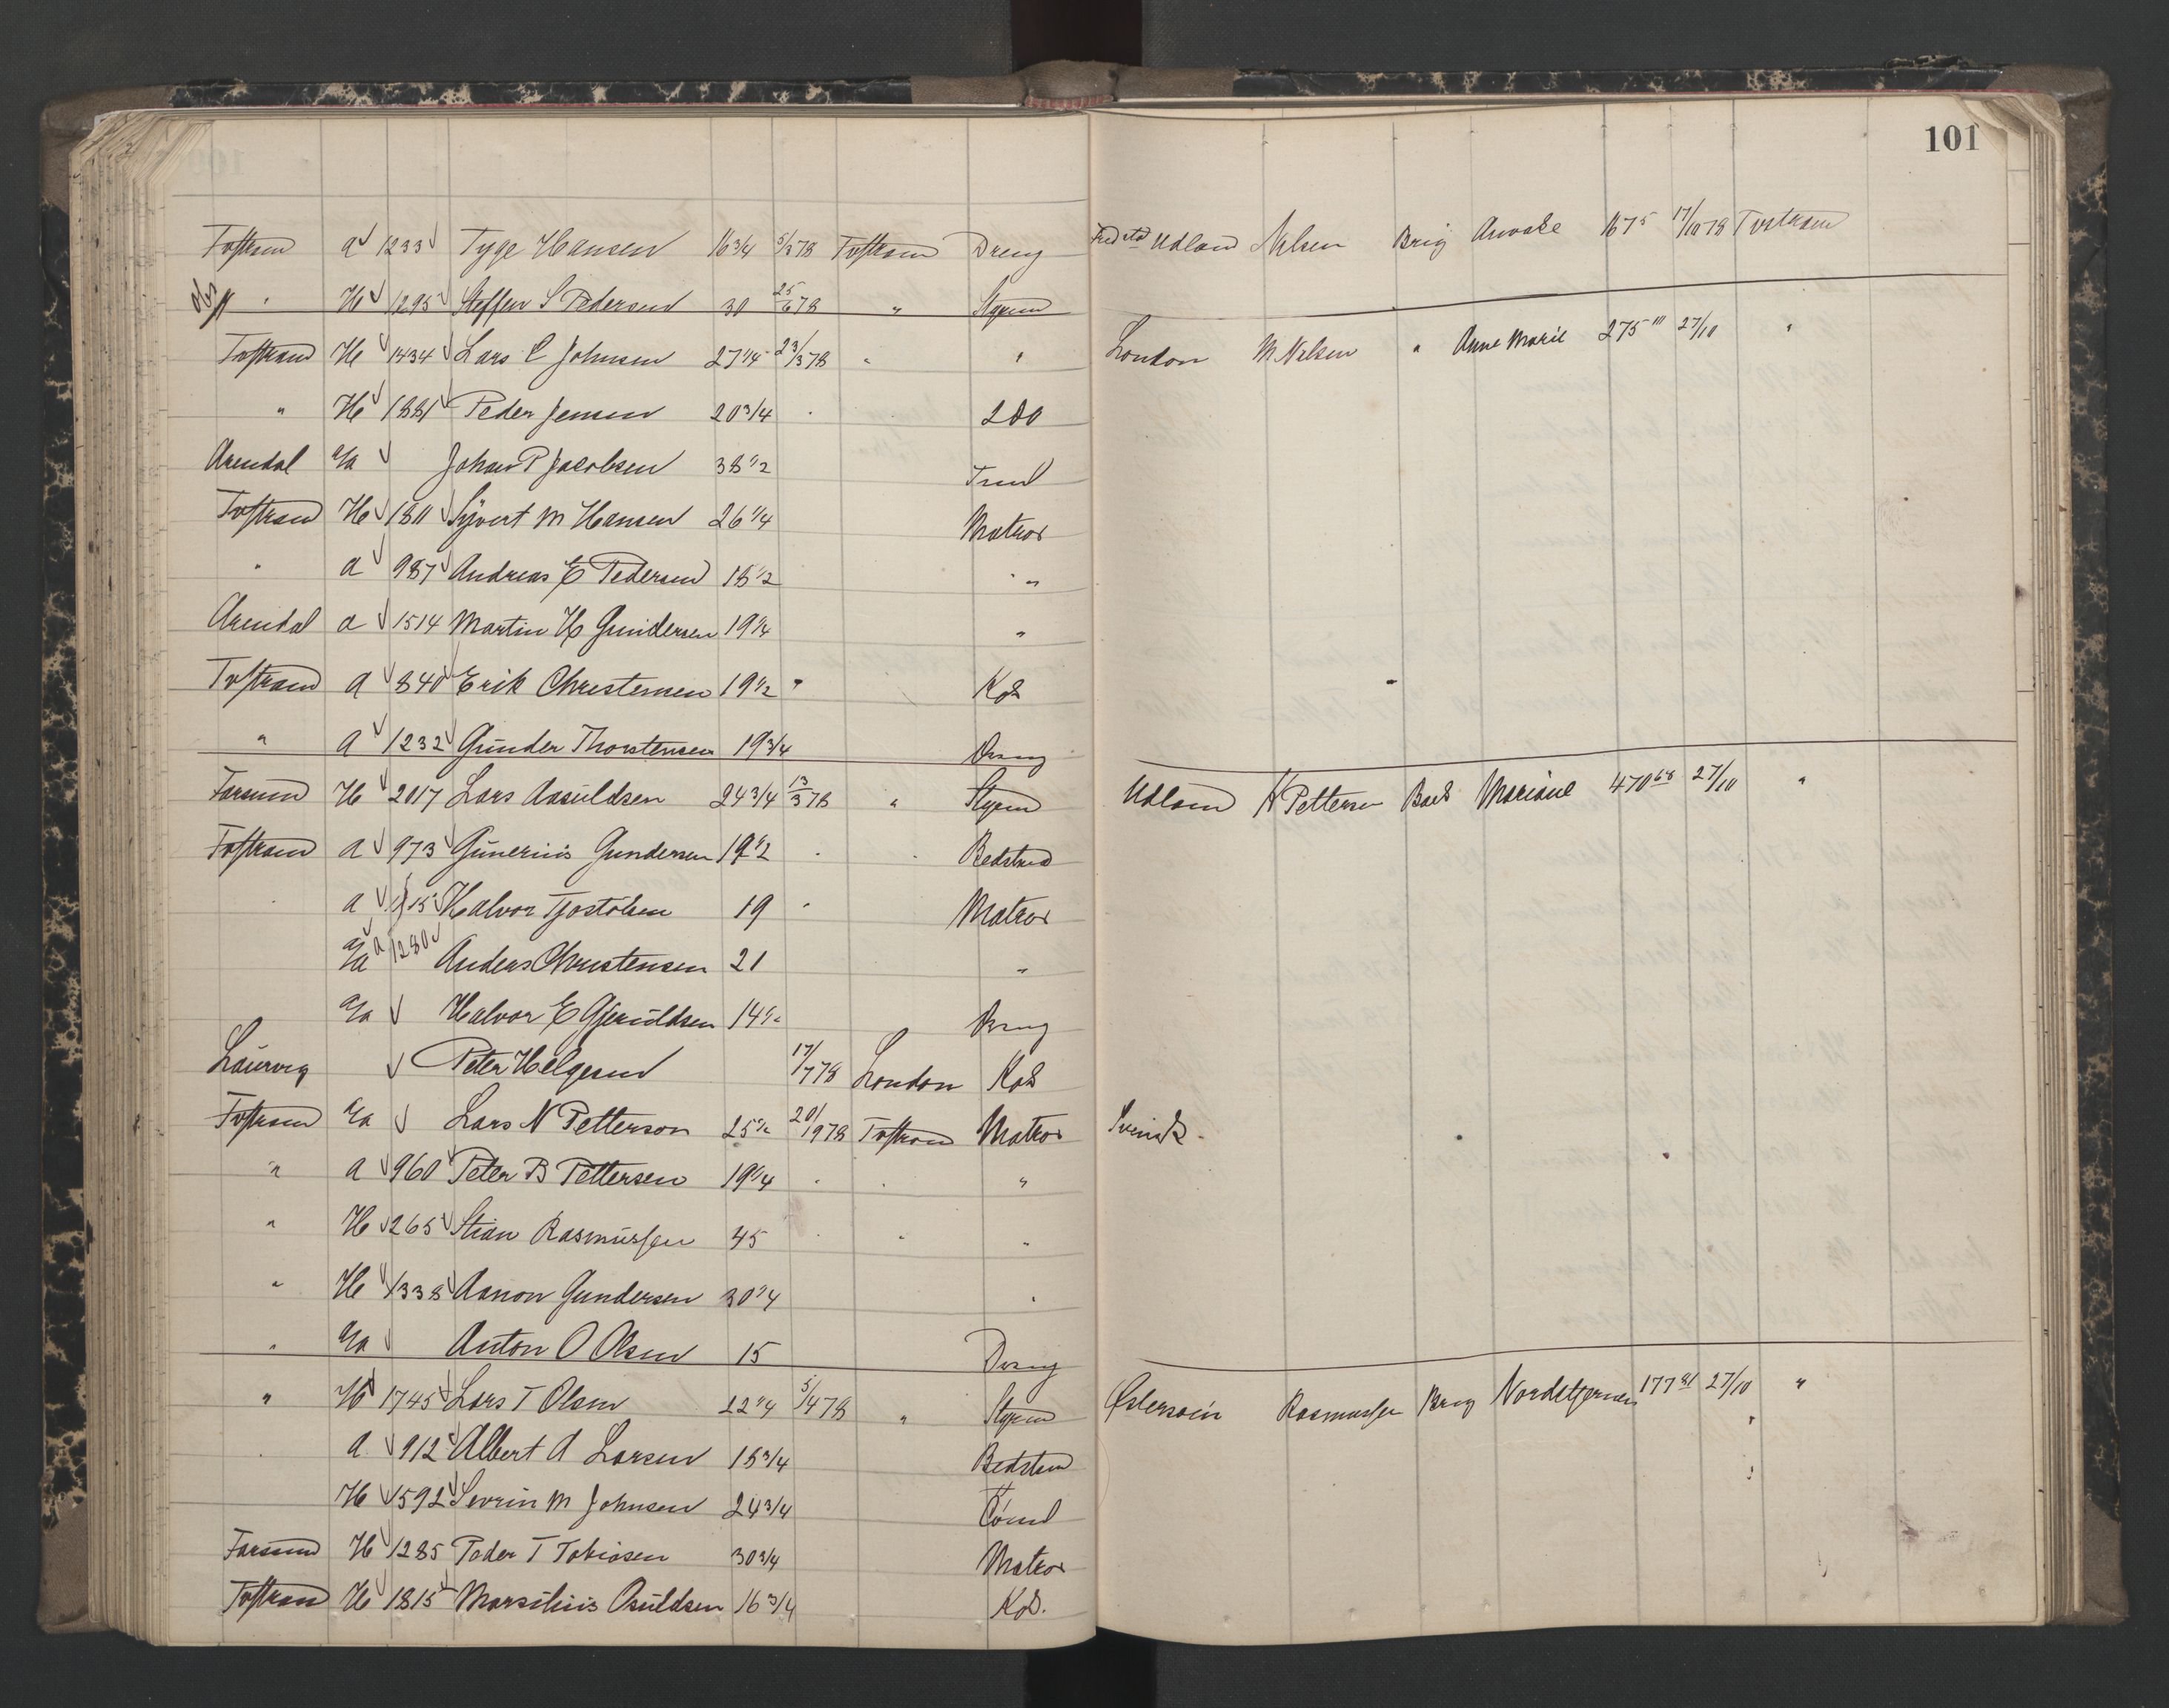 101
Tvstrand a 1233 Tyge Hansen 16 3/4 5/3 78 Tvstrand Dreng Fredstd Udland Nilsen Brig 167 5 17/10 78 Tvstrand
" H 1295 Steffen S Pedersen 30 25/6 78 " Styrm
Tvstrand H 1434 Lars C Johnsen 27 1/4 23/3 78 " " London M Nilsen " Anne Marie 275 111 27/10 "
" H 1881 Peder Jensen 20 3/4 " 2d0
Arendal e/a Johan P Jacobsen 38 1/2
Tvstrand H 1811 Syvert M Hansen 26 1/4 Matros
" a 987 Andreas E Pedersen 18 1/2 "
Arendal a 1514 Martin H Gundersen 19 1/4 "
Tvstrand a 840 Erik Christensen 19 1/2 " Kok
" a 1232 Gunder Thorstensen 19 3/4 Dreng
Farsund H 2017 Lars Aasuldsen 24 3/4 13/3 78 " Styrm Udland H Pettersen Bark Mariane 470 68 27/10 "
Tvstrand a 973 Gunerius Gundersen 19 1/2 " " Bedstmd
" a 1115 Halvor Tjostolsen 19 " Matros
e/a a 1280 Anders Christensen 21 "
e/a Halvor E Gjeruldsen 14 1/2 Dreng
Laurvig Peter Helgesen 17/7 78 London Kok
Tvstrand e/a Lars N Petterson 25 1/2 20/9 78 Tvstrand Matros Svensk
" a 960 Peter B Pettersen 19 1/4 " " "
" H 265 Stian Rasmussen 45 " " "
" H 1338 Aanon Gundersen 30 1/4 "
" e/a Anton O Olsen 15 Dreng
" H 1745 Lars T Olsen 22 1/4 5/4 78 " Styrm Østersøin Rasmussen Brig Nordstjernen 177 81 27/10 "
" a 912 Albert A Larsen 18 3/4 Bedstm "
H 1592 Sevrin M Johnsen 24 3/4
Farsund H 1285 Peder T Tobiasen 30 3/4 Matros
Tvstrand H 1815 Marsilius Osuldsen 16 3/4 Kok.